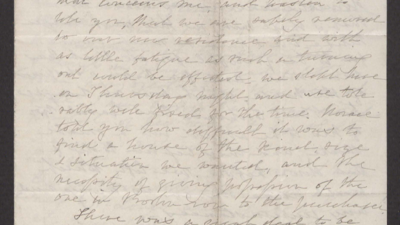 and hasten to
tell you, that we are safely removed
to our new residence and with
as little fatigue as such a turning
out could be effected. we slept here
on Thursday night and we are
fixed for the time. Horace
told you how difficult it was to
find a house of the kind, size
& situation we wanted, and the
necessity of giving possession of the
one in Row to the purchaser.
There was a great deal to be